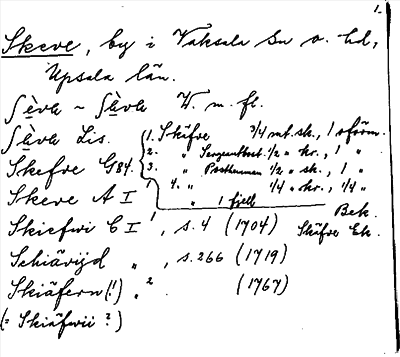 1.
Skeve, by i Vaksala sn o. hd,
Upsala län.
ʃèvɐ ~ ʃèvɐ W. m. fl.
ʃèvɐ Lis.
Skefve G84.
Skeve A I
1. Skäfve 3/4 mt. sk., 1
2. " 1/2 " kr., 1 "
3. " 1/2 " sk., 1 "
4. " 1/4 " kr., 1/4 "
" 1 fjell
Bek.
Skäfve Ek.
Skiefwi C I ¹, s. 4 (1704)
Schiävijd " , s. 266 (1719)
Skiäfern (!) " ² (1767)
(= Skiäfwii ?)